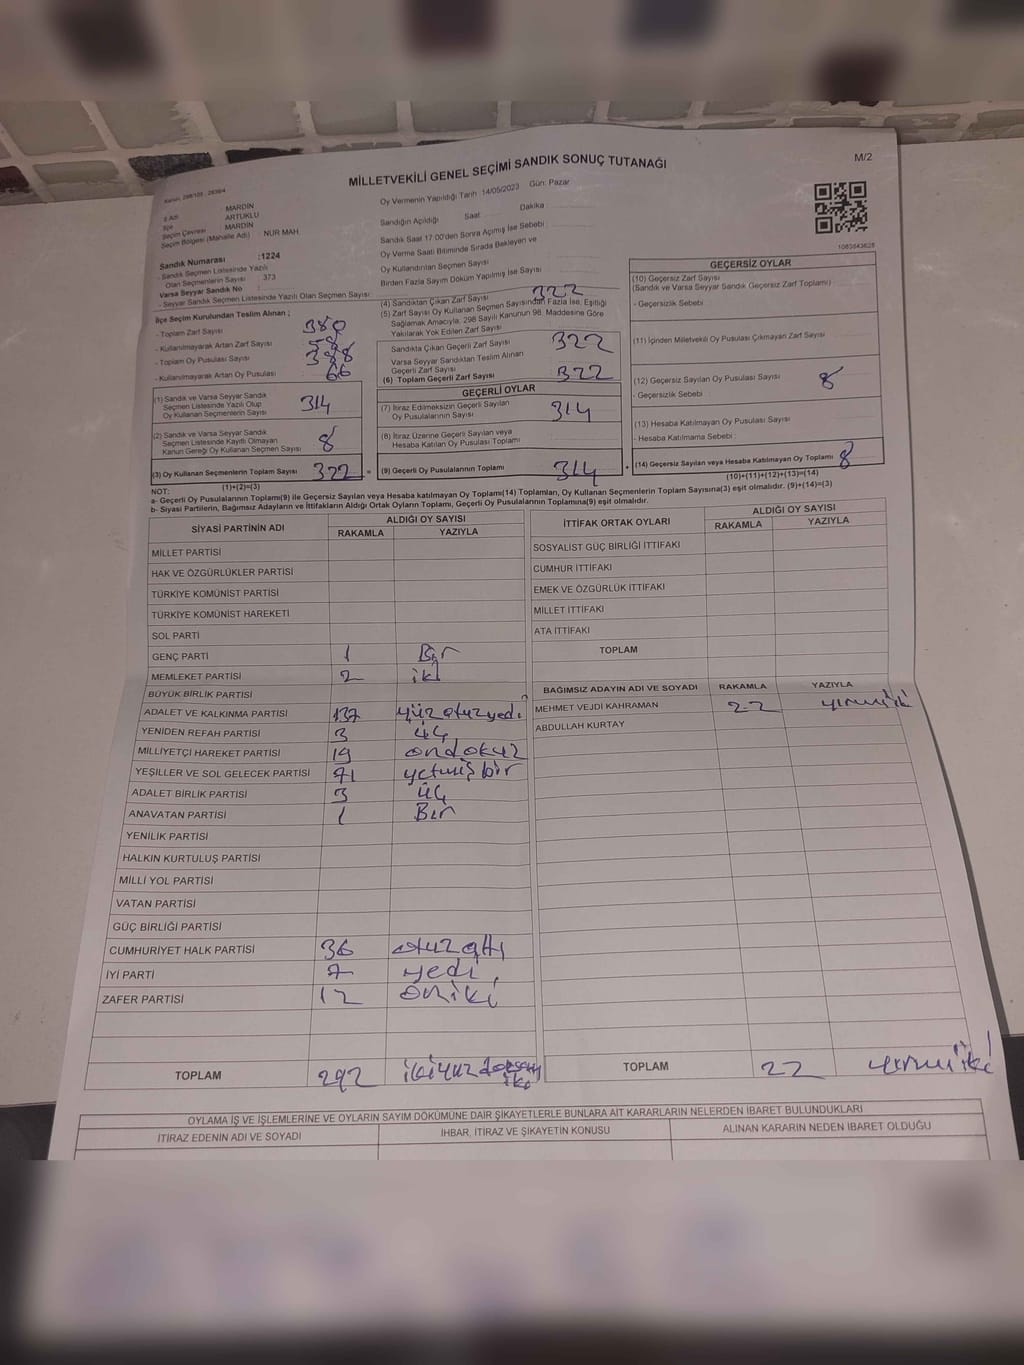 MİLLETVEKİLİ GENEL SEÇİMİ SANDIK SONUÇ TUTANAĞI
M/2
İl Adı MARDİN
İlçe ARTUKLU
Seçim Çevresi MARDİN
Seçim Bölgesi (Mahalle Adı) NUR MAH.
Oy Vermenin Yapıldığı Tarih 14/05/2023 Gün: Pazar
Sandığın Açıldığı Saat Dakika
Sandık Saat 17.00'den Sonra Açılmış İse Sebebi
Oy Verme Saati Bitiminde Sırada Bekleyen ve
Oy Kullandırılan Seçmen Sayısı
Birden Fazla Sayım Dökümü Yapılmış İse Sayısı
1083643625
Sandık Numarası :1224
- Sandık Seçmen Listesinde Yazılı
Olan Seçmenlerin Sayısı : 373
Varsa Seyyar Sandık No
- Seyyar Sandık Seçmen Listesinde Yazılı Olan Seçmen Sayısı:
İlçe Seçim Kurulundan Teslim Alınan ;
- Toplam Zarf Sayısı 380
- Kullanılmayarak Artan Zarf Sayısı
- Toplam Oy Pusulası Sayısı
- Kullanılmayarak Artan Oy Pusulası 66
(1) Sandık ve Varsa Seyyar Sandık
Seçmen Listesinde Yazılı Olup
Oy Kullanan Seçmenlerin Sayısı 314
(2) Sandık ve Varsa Seyyar Sandık
Seçmen Listesinde Kayıtlı Olmayan
Kanun Gereği Oy Kullanan Seçmen Sayısı 8
(3) Oy Kullanan Seçmenlerin Toplam Sayısı 322
(1)+(2)=(3)
(4) Sandıktan Çıkan Zarf Sayısı 322
(5) Zarf Sayısı Oy Kullanan Seçmen Sayısından Fazla İse, Eşitliği
Sağlamak Amacıyla, 298 Sayılı Kanunun 98. Maddesine Göre
Yakılarak Yok Edilen Zarf Sayısı
Sandıkta Çıkan Geçerli Zarf Sayısı 322
Varsa Seyyar Sandıktan Teslim Alınan
Geçerli Zarf Sayısı
(6) Toplam Geçerli Zarf Sayısı 322
GEÇERLİ OYLAR
(7) İtiraz Edilmeksizin Geçerli Sayılan
Oy Pusulalarının Sayısı 314
(8) İtiraz Üzerine Geçerli Sayılan veya
Hesaba Katılan Oy Pusulası Toplamı
= (9) Geçerli Oy Pusulalarının Toplamı 314
GEÇERSİZ OYLAR
(10) Geçersiz Zarf Sayısı
(Sandık ve Varsa Seyyar Sandık Geçersiz Zarf Toplamı)
- Geçersizlik Sebebi
(11) İçinden Milletvekili Oy Pusulası Çıkmayan Zarf Sayısı
(12) Geçersiz Sayılan Oy Pusulası Sayısı 8
- Geçersizlik Sebebi
(13) Hesaba Katılmayan Oy Pusulası Sayısı
- Hesaba Katılmama Sebebi :
+ (14) Geçersiz Sayılan veya Hesaba Katılmayan Oy Pusulası Toplamı 8
(10)+(11)+(12)+(13)=(14)
NOT:
a- Geçerli Oy Pusulalarının Toplamı(9) ile Geçersiz Sayılan veya Hesaba katılmayan Oy Toplamı(14) Toplamları, Oy Kullanan Seçmenlerin Toplam Sayısına(3) eşit olmalıdır. (9)+(14)=(3)
b- Siyasi Partilerin, Bağımsız Adayların ve İttifakların Aldığı Ortak Oyların Toplamı, Geçerli Oy Pusulalarının Toplamına(9) eşit olmalıdır.
SİYASİ PARTİNİN ADI ALDIĞI OY SAYISI
RAKAMLA YAZIYLA
MİLLET PARTİSİ
HAK VE ÖZGÜRLÜKLER PARTİSİ
TÜRKİYE KOMÜNİST PARTİSİ
TÜRKİYE KOMÜNİST HAREKETİ
SOL PARTİ
GENÇ PARTİ 1 Bir
MEMLEKET PARTİSİ 2 iki
BÜYÜK BİRLİK PARTİSİ
ADALET VE KALKINMA PARTİSİ 137 yüzotuzyedi
YENİDEN REFAH PARTİSİ 3 üç
MİLLİYETÇİ HAREKET PARTİSİ 19 ondokuz
YEŞİLLER VE SOL GELECEK PARTİSİ 71 yetmişbir
ADALET BİRLİK PARTİSİ 3 üç
ANAVATAN PARTİSİ 1 Bir
YENİLİK PARTİSİ
HALKIN KURTULUŞ PARTİSİ
MİLLİ YOL PARTİSİ
VATAN PARTİSİ
GÜÇ BİRLİĞİ PARTİSİ
CUMHURİYET HALK PARTİSİ 36 otuzaltı
İYİ PARTİ 7 yedi
ZAFER PARTİSİ 12 oniki
TOPLAM 292 ikiyüzdoksaniki
İTTİFAK ORTAK OYLARI ALDIĞI OY SAYISI
RAKAMLA YAZIYLA
SOSYALİST GÜÇ BİRLİĞİ İTTİFAKI
CUMHUR İTTİFAKI
EMEK VE ÖZGÜRLÜK İTTİFAKI
MİLLET İTTİFAKI
ATA İTTİFAKI
TOPLAM
BAĞIMSIZ ADAYIN ADI VE SOYADI RAKAMLA YAZIYLA
MEHMET VEJDİ KAHRAMAN 22 yirmiiki
ABDULLAH KURTAY
TOPLAM 22 yirmiiki
OYLAMA İŞ VE İŞLEMLERİNE VE OYLARIN SAYIM DÖKÜMÜNE DAİR ŞİKAYETLERLE BUNLARA AİT KARARLARIN NELERDEN İBARET BULUNDUKLARI
İTİRAZ EDENİN ADI VE SOYADI İHBAR, İTİRAZ VE ŞİKAYETİN KONUSU ALINAN KARARIN NEDEN İBARET OLDUĞU